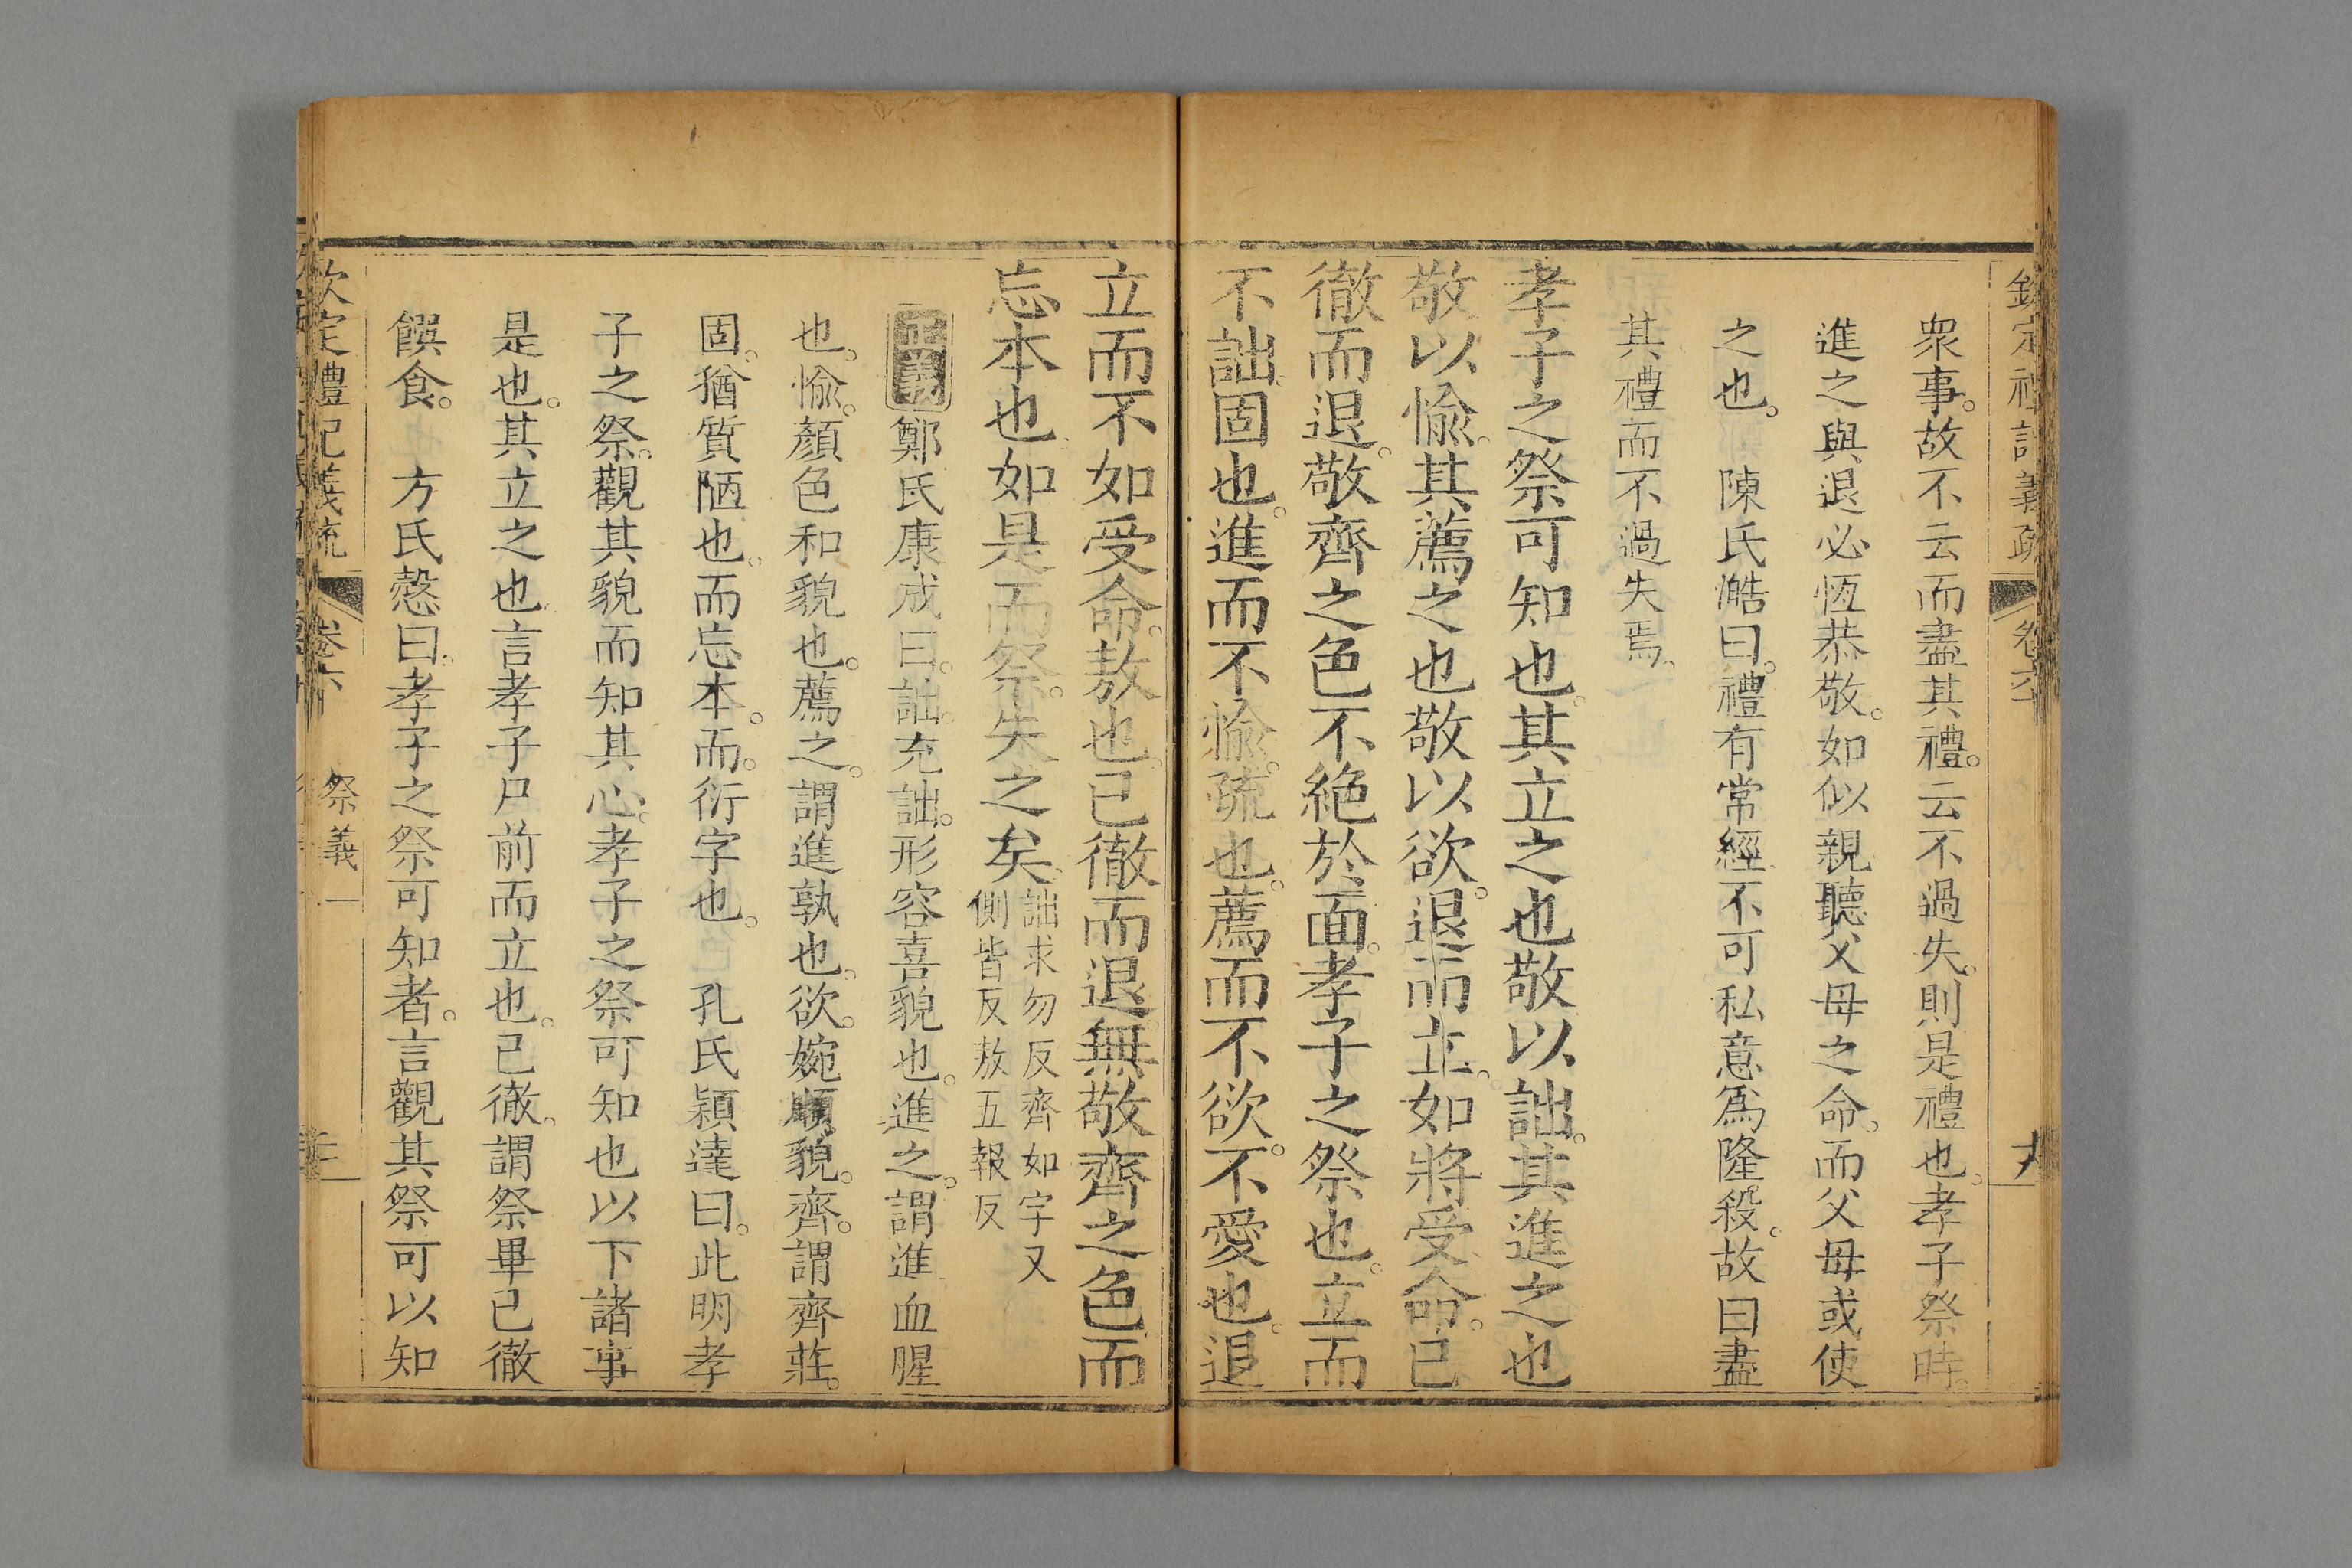 衆事。故不云而盡其禮。云不過失。則是禮也。孝子祭時。
進之與退必恆恭敬。如似親聽父母之命。而父母或使
之也。 陳氏澔曰。禮有常經。不可私意爲隆殺。故曰盡
其禮而不過失焉。
孝子之祭可知也。其立之也敬以詘。其進之也
敬以愉。其薦之也敬以欲。退而立。如將受命。已
徹而退。敬齊之色不絶於面。孝子之祭也。立而
不詘。固也。進而不愉。疏也。薦而不欲。不愛也。退
立而不如受命。敖也。已徹而退。無敬齊之色而
忘本也。如是而祭。失之矣。
詘求勿反齊如字又
側皆反敖五報反
正義 鄭氏康成曰。詘。充詘。形容喜貌也。進之。謂進血腥
也。愉。顏色和貌也。薦之。謂進孰也。欲。婉順貌。齊。謂齊莊。
固。猶質陋也。而忘本。而。衍字也。 孔氏穎達曰。此明孝
子之祭。觀其貌而知其心。孝子之祭可知也以下諸事
是也。其立之也。言孝子尸前而立也。已徹。謂祭畢已徹
饌食。 方氏慤曰。孝子之祭可知者。言觀其祭可以知
欽定禮記義疏 卷六 祭義一